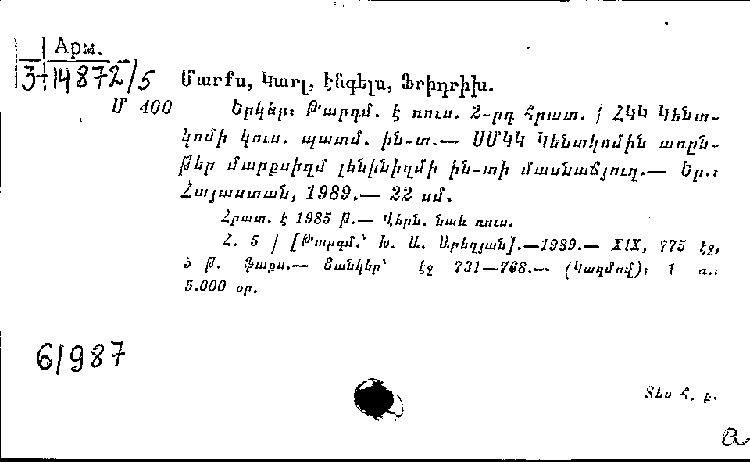 Арм.
3-14872/5
Մարքս, Կարլ, Էնգելս, Ֆրիդրիխ.
Մ 400
Երկեր։ Թարգմ. է ռուս. 2-րդ Հրատ. / ՀԿԿ Կենտ-
կոմի կուս. պատմ. ին-տ.— ՍՄԿԿ Կենտկոմին առըն-
թեր մարքսիզմ լենինիզմի ին-տի մասնաճյուղ.— Եր.։
Հայաստան, 1989.— 22 սմ.
Հրատ. է 1985 թ.— Վերն. նաև ռուս.
Հ. 5 / [Թարգմ.՝ Խ. Ա. Աբեղյան].—1989.— XIX, 775 էջ,
թ. ֆաքս.— Ցանկեր՝ էջ 731—768.— (Կազմով)։ 1
5.000 օր.
61987
Տես Հ. ը.